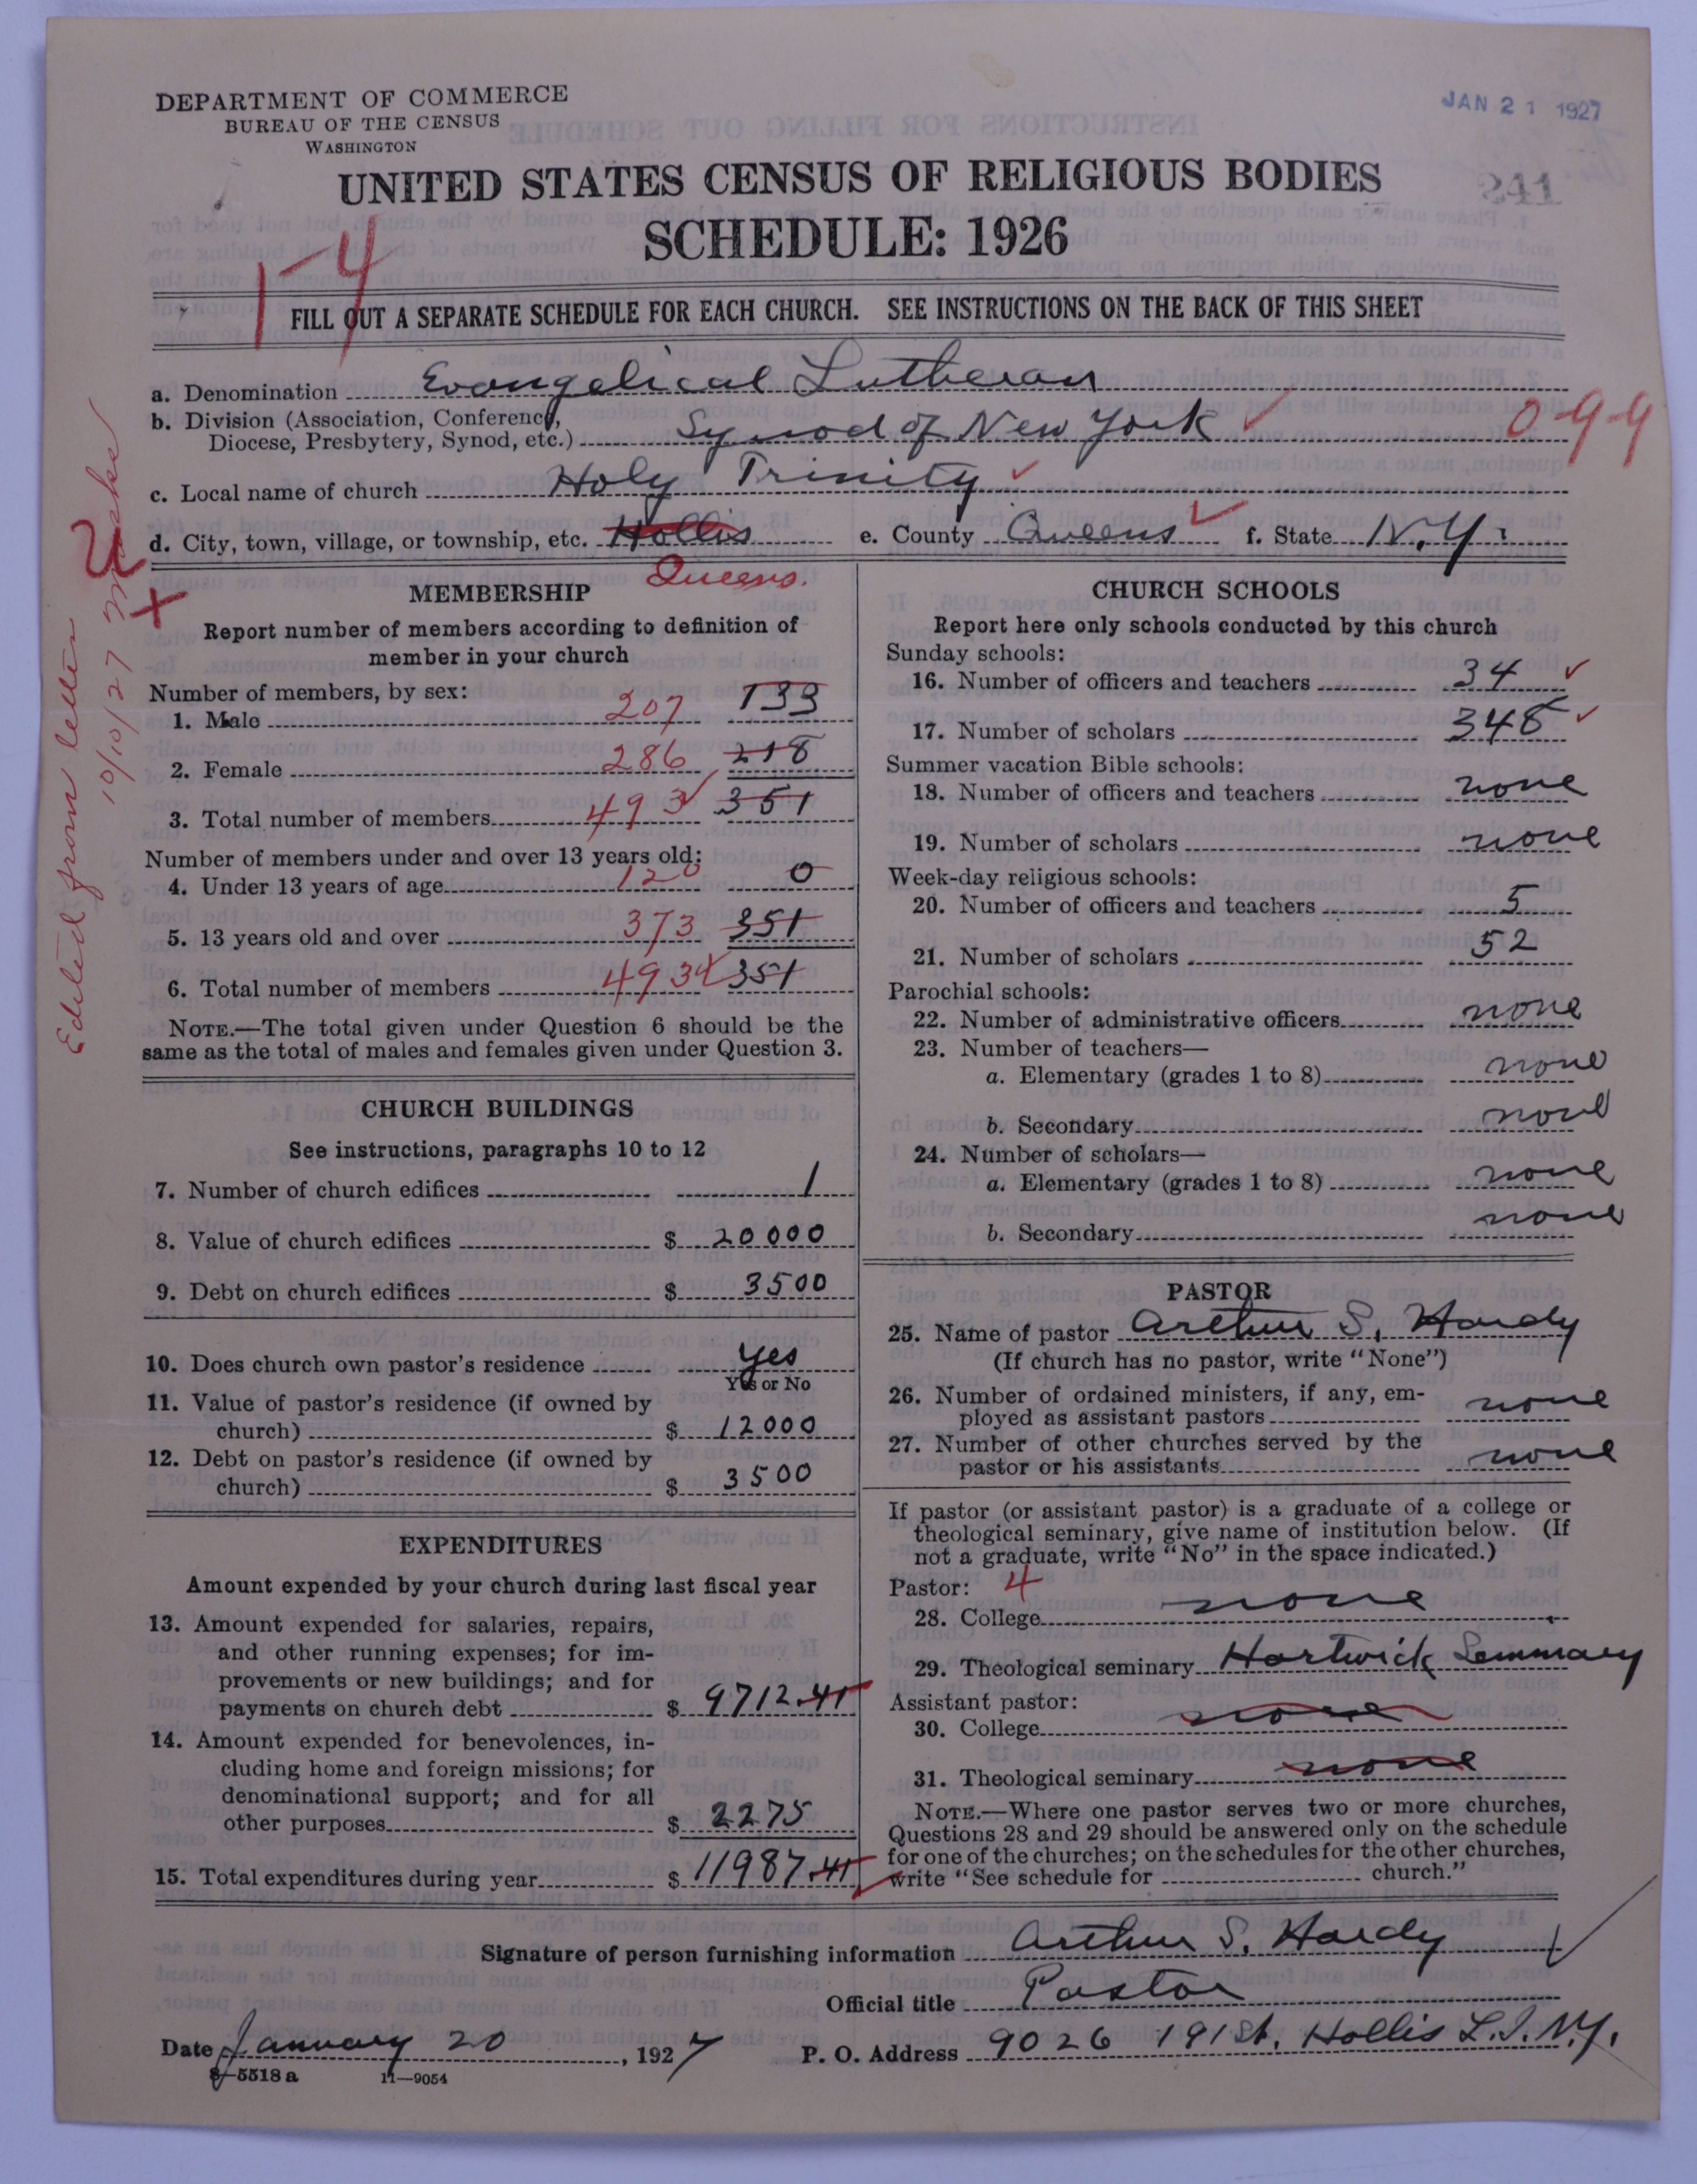 DEPARTMENT OF COMMERCE
BUREAU OF THE CENSUS
WASHINGTON
JAN 21 1927
241
UNITED STATES CENSUS OF RELIGIOUS BODIES
SCHEDULE: 1926
1-4
FILL OUT A SEPARATE SCHEDULE FOR EACH CHURCH. SEE INSTRUCTIONS ON THE BACK OF THIS SHEET
a. Denomination Evangelical Lutheran
b. Division (Association, Conference, Diocese, Presbytery, Synod, etc.) Synod of New York 0-9-9
c. Local name of church Holy Trinity
d. City, town, village, or township, etc. Hollis e. County Queens f. State N.Y.
Queens.
Edited from letter
10/10/27
MEMBERSHIP
Report number of members according to definition of
member in your church
Number of members, by sex:
1. Male 207 133
2. Female 286 218
3. Total number of members 493 351
Number of members under and over 13 years old:
4. Under 13 years of age 120 0
5. 13 years old and over 373 351
6. Total number of members 493 351
NOTE.—The total given under Question 6 should be the
same as the total of males and females given under Question 3.
CHURCH BUILDINGS
See instructions, paragraphs 10 to 12
7. Number of church edifices 1
8. Value of church edifices $ 20000
9. Debt on church edifices $ 3500
10. Does church own pastor's residence yes
Yes or No
11. Value of pastor's residence (if owned by
church) $ 12000
12. Debt on pastor's residence (if owned by
church) $ 3500
EXPENDITURES
Amount expended by your church during last fiscal year
13. Amount expended for salaries, repairs,
and other running expenses; for im-
provements or new buildings; and for
payments on church debt $ 9712.41
14. Amount expended for benevolences, in-
cluding home and foreign missions; for
denominational support; and for all
other purposes $ 2275
15. Total expenditures during year $ 11987.41
CHURCH SCHOOLS
Report here only schools conducted by this church
Sunday schools:
16. Number of officers and teachers 34
17. Number of scholars 348
Summer vacation Bible schools:
18. Number of officers and teachers none
19. Number of scholars none
Week-day religious schools:
20. Number of officers and teachers 5
21. Number of scholars 52
Parochial schools:
22. Number of administrative officers none
23. Number of teachers—
a. Elementary (grades 1 to 8) none
b. Secondary none
24. Number of scholars—
a. Elementary (grades 1 to 8) none
b. Secondary none
PASTOR
25. Name of pastor Arthur S. Hardy
(If church has no pastor, write "None")
26. Number of ordained ministers, if any, em-
ployed as assistant pastors none
27. Number of other churches served by the
pastor or his assistants none
If pastor (or assistant pastor) is a graduate of a college or
theological seminary, give name of institution below. (If
not a graduate, write "No" in the space indicated.)
Pastor: 4
28. College none
29. Theological seminary Hartwick Seminary
Assistant pastor:
30. College none
31. Theological seminary none
NOTE.—Where one pastor serves two or more churches,
Questions 28 and 29 should be answered only on the schedule
for one of the churches; on the schedules for the other churches,
write "See schedule for church."
Signature of person furnishing information Arthur S. Hardy
Official title Pastor
Date January 20, 1927 P. O. Address 9026 191 St. Hollis L.I. N.Y.
8—5518 a 11—9054